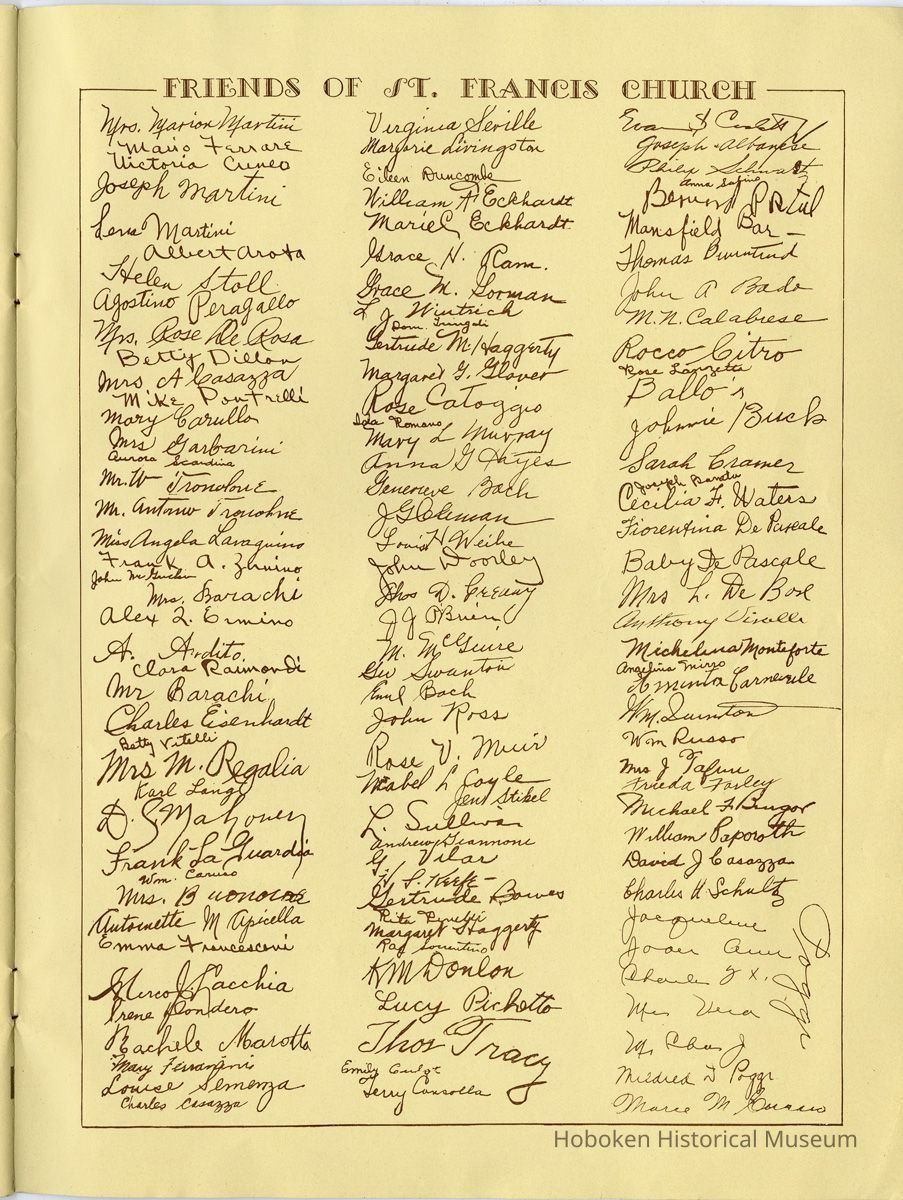 FRIENDS OF ST. FRANCIS CHURCH
Mrs. Marion Martini
Mario Ferrare
Victoria Cuneo
Joseph Martini
Lena Martini
Albert Arata
Helen Stoll
Agostino Peragallo
Mrs. Rose De Rosa
Betty Dillon
Mrs A Casazza
Mike Pontrelli
Mary Carullo
Mrs Garbarini
Aurora Scardina
Mr. W Tronolone
Mr. Antonio Tronolone
Miss Angela Lavagnino
Frank A. Zunino
John McGuckin
Mrs. Barachi
Alex L. Ermino
A. Ardito
Clara Raimondi
Mr Barachi
Charles Eisenhardt
Betty Vitelli
Mrs M. Regalia
Karl Lange
D. J Mahoney
Frank La Guardia
Wm. Caruso
Mrs. Buonocore
Antoinette M Apicella
Emma Francesconi
Marco J. Cacchia
Irene Pondero
Rachele Marotta
Mary Ferrarini
Louise Semenza
Charles Casazza
Virginia Seville
Marjorie Livingston
Eileen Duncombe
William F. Eckhardt
Marie C Eckhardt
Grace N. Ram.
Grace M. Gorman
L J Wintrich
Dom.
Gertrude M. Haggerty
Margaret G. Glover
Rose Catoggio
Ida Romano
Mary L Murray
Anna G Hayes
Genevieve Bach
J G Coleman
Louis H Weihe
John Woolley
Thos D. Creavy
J J O'Brien
M. McGuire
Geo Swanton
Emil Bach
John Ross
Rose V. Muir
Mabel L Coyle
Jen Stikel
L. Sullivan
Andrew Giannone
G. Vilar
H S. Keefe -
Gertrude Bowes
Rita Pinelli
Margaret Haggerty
Ray Sorrentino
KM Donlon
Lucy Pichetto
Thos Tracy
Emily
Terry Consolla
Joseph Albanese
Philip Schwartz
Anna
Mansfield Bar -
Thomas
John A Bado
M. N. Calabrese
Rocco Citro
Rose Lanzetta
Ballo's
Johnnie Buck
Sarah Cramer
Joseph
Cecilia F. Waters
Fiorentina De Pascale
Baby De Pascale
Mrs L. De Bose
Anthony
Michelina Monteforte
Angelina Mirro
Aminta Carnevale
Wm. Swinton
Wm Russo
Mrs J Tafuri
Frieda Farley
Michael F.
William Paproth
David J Casazza
Charles H. Schultz
Jacqueline
Joan Ann
Charles F X.
Mrs Vera
Mr Chas J
Poggi
Mildred D Poggi
Marie M.
Hoboken Historical Museum